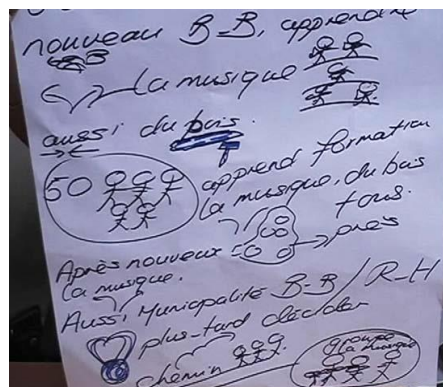 nouveau B-B, apprendre
la musique
aussi du bois.
50 apprend formation
la musique, du bois
tous.
près
Après nouveau =
la musique.
Aussi Municipalité B-B / R-H
plus-tard décider
chemin
groupe
la musique